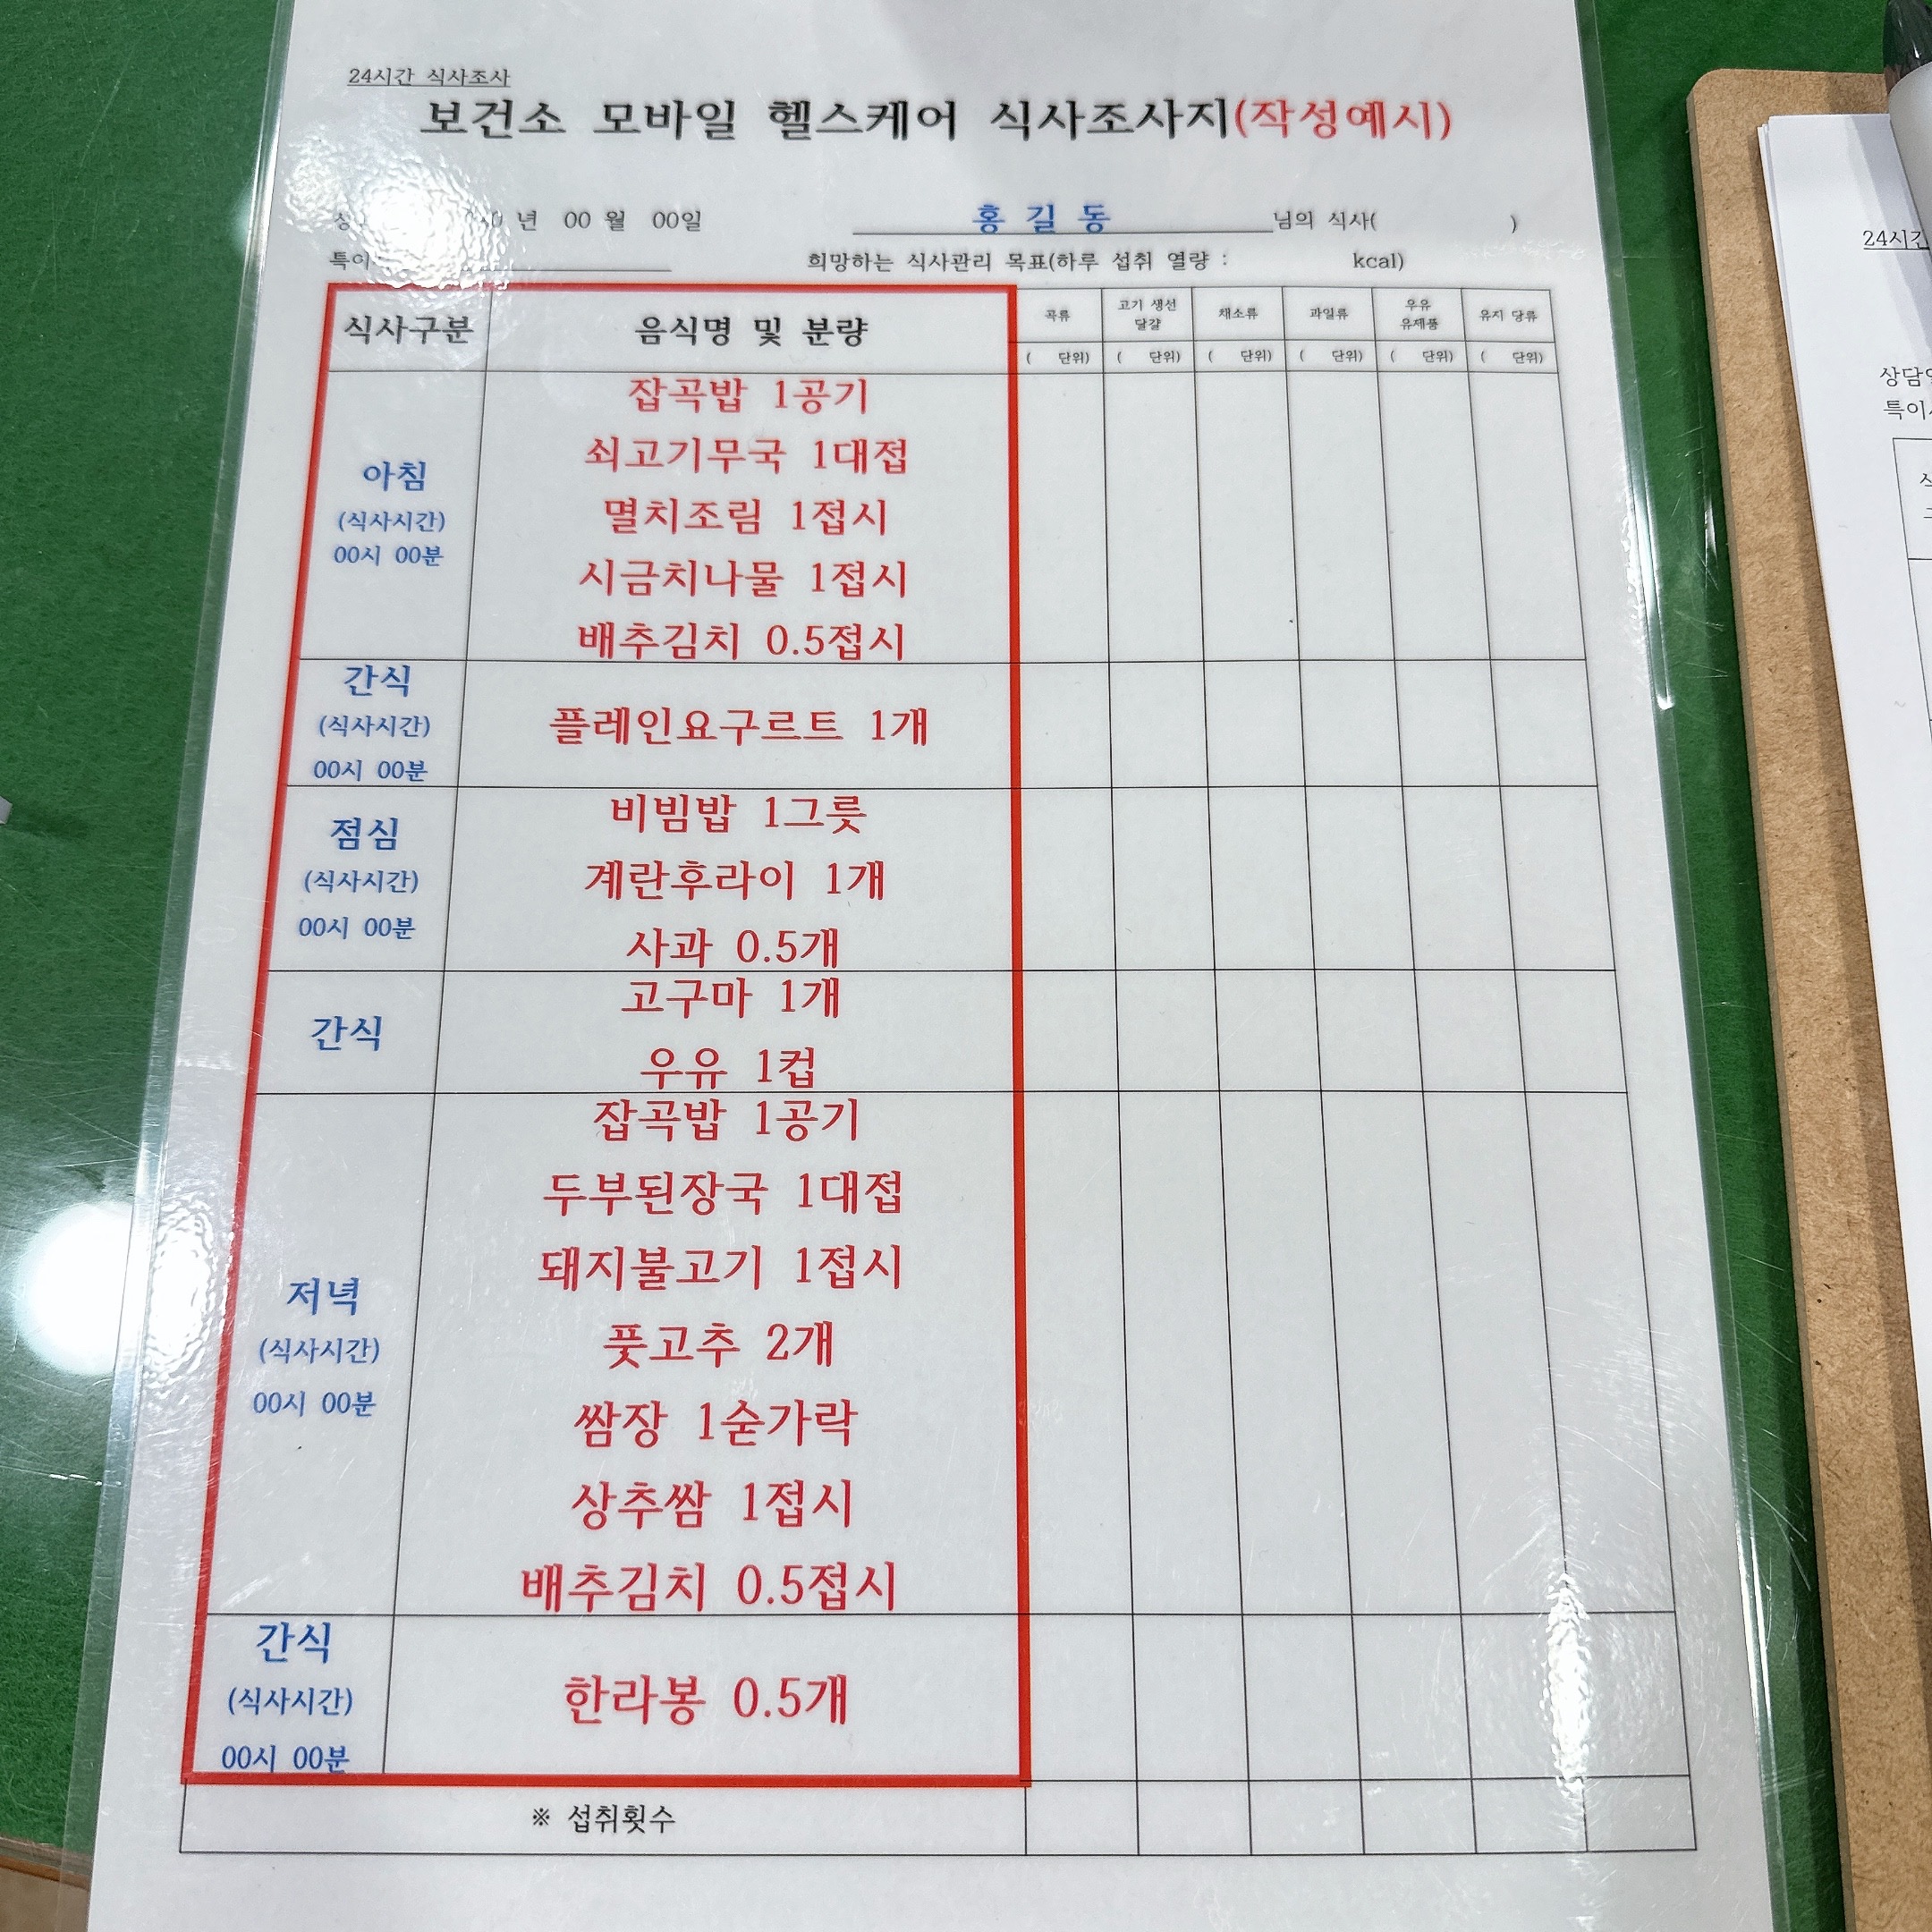 24시간 식사조사
보건소 모바일 헬스케어 식사조사지(작성예시)
년 00 월 00일 홍 길 동 님의 식사( )
희망하는 식사관리 목표(하루 섭취 열량 : kcal)
식사구분 음식명 및 분량 곡류 고기 생선 달걀 채소류 과일류 우유 유제품 유지 당류
( 단위) ( 단위) ( 단위) ( 단위) ( 단위) ( 단위)
아침
(식사시간)
00시 00분
잡곡밥 1공기
쇠고기무국 1대접
멸치조림 1접시
시금치나물 1접시
배추김치 0.5접시
간식
(식사시간)
00시 00분
플레인요구르트 1개
점심
(식사시간)
00시 00분
비빔밥 1그릇
계란후라이 1개
사과 0.5개
간식
고구마 1개
우유 1컵
저녁
(식사시간)
00시 00분
잡곡밥 1공기
두부된장국 1대접
돼지불고기 1접시
풋고추 2개
쌈장 1숟가락
상추쌈 1접시
배추김치 0.5접시
간식
(식사시간)
00시 00분
한라봉 0.5개
※ 섭취횟수
24시간
상담
특이